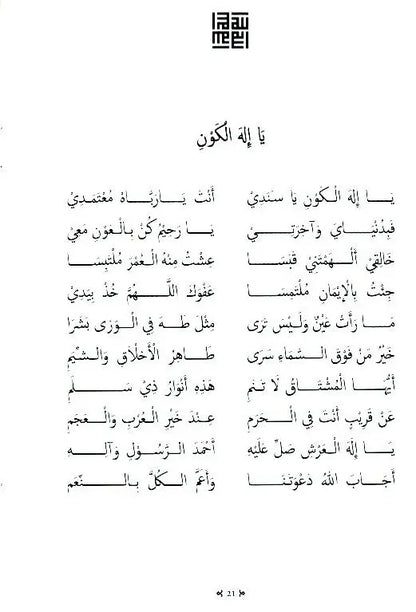 يَا إِلهَ الْكَوْنِ
يَـا إِلهَ الْكَـوْنِ يَا سَنَدِيْ أَنْتَ يَـا رَبَّـاهُ مُعْتَمَدِيْ
فَبِدُنْيَـايَ وَآخِرَتِـيْ يَـا رَحِيْمُ كُنْ بِالْعَوْنِ مَعِيْ
خَالِقِيْ أَلْهَمْتَنِيْ قَبَسَـا عِشْتُ مِنْهُ الْعُمْرَ مُلْتَبِسَـا
جِئْتُ بِالْإِيْمَانِ مُلْتَمِسَـا عَفْوَكَ اللّٰهُمَّ خُذْ بِيَدِيْ
مَـا رَأَتْ عَيْنٌ وَلَيْسَ تَرَى مِثْلَ طٰهَ فِي الْوَرَى بَشَرَا
خَيْرُ مَنْ فَوْقَ السَّمَاءِ سَرَى طَـاهِرُ الْأَخْلَاقِ وَالشِّيَمِ
أَيُّهَـا الْمُشْتَـاقُ لَا تَنَمِ هٰذِهِ أَنْوَارُ ذِيْ سَـلَمِ
عَنْ قَرِيْبٍ أَنْتَ فِي الْحَرَمِ عِنْدَ خَيْرِ الْعُرْبِ وَالْعَجَمِ
يَـا إِلهَ الْعَرْشِ صَلِّ عَلَيْهِ أَحْمَدَ الرَّسُوْلِ وَآلِـهِ
أَجَابَ اللهُ دَعْوَتَنَـا وَأَعَمَّ الْكُلَّ بِـالنِّعَمِ
21